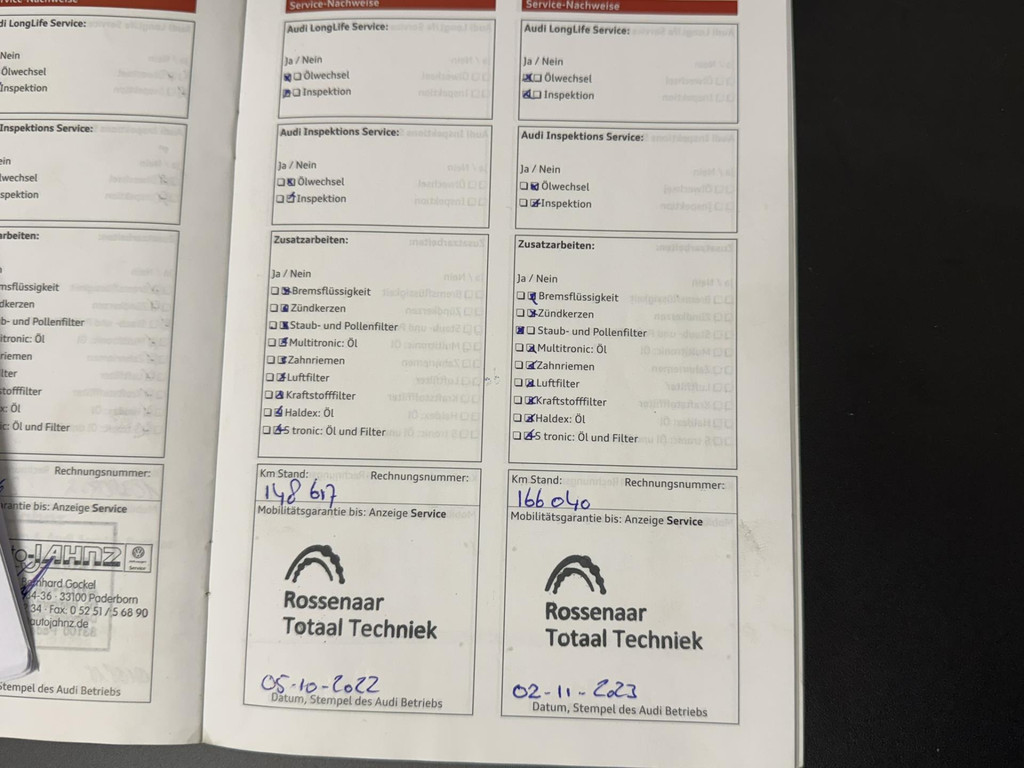 rvice-Nachweise
di LongLife Service:
Nein
Ölwechsel
Inspektion
Inspektions Service:
ein
lwechsel
spektion
rbeiten:
msflüssigkeit
dkerzen
b- und Pollenfilter
itronic: Öl
riemen
lter
stofffilter
x: Öl
ic: Öl und Filter
Rechnungsnummer:
rantie bis: Anzeige Service
JAHNZ
Service
nhard Gockel
4-36 · 33100 Paderborn
34 · Fax: 0 52 51 / 5 68 90
autojahnz.de
Stempel des Audi Betriebs
Service-Nachweise
Audi LongLife Service:
Ja / Nein
Ölwechsel
Inspektion
Audi Inspektions Service:
Ja / Nein
Ölwechsel
Inspektion
Zusatzarbeiten:
Ja / Nein
Bremsflüssigkeit
Zündkerzen
Staub- und Pollenfilter
Multitronic: Öl
Zahnriemen
Luftfilter
Kraftstofffilter
Haldex: Öl
S tronic: Öl und Filter
Km Stand: Rechnungsnummer:
148 617
Mobilitätsgarantie bis: Anzeige Service
Rossenaar
Totaal Techniek
05-10-2022
Datum, Stempel des Audi Betriebs
Service-Nachweise
Audi LongLife Service:
Ja / Nein
Ölwechsel
Inspektion
Audi Inspektions Service:
Ja / Nein
Ölwechsel
Inspektion
Zusatzarbeiten:
Ja / Nein
Bremsflüssigkeit
Zündkerzen
Staub- und Pollenfilter
Multitronic: Öl
Zahnriemen
Luftfilter
Kraftstofffilter
Haldex: Öl
S tronic: Öl und Filter
Km Stand: Rechnungsnummer:
166 040
Mobilitätsgarantie bis: Anzeige Service
Rossenaar
Totaal Techniek
02-11-2023
Datum, Stempel des Audi Betriebs